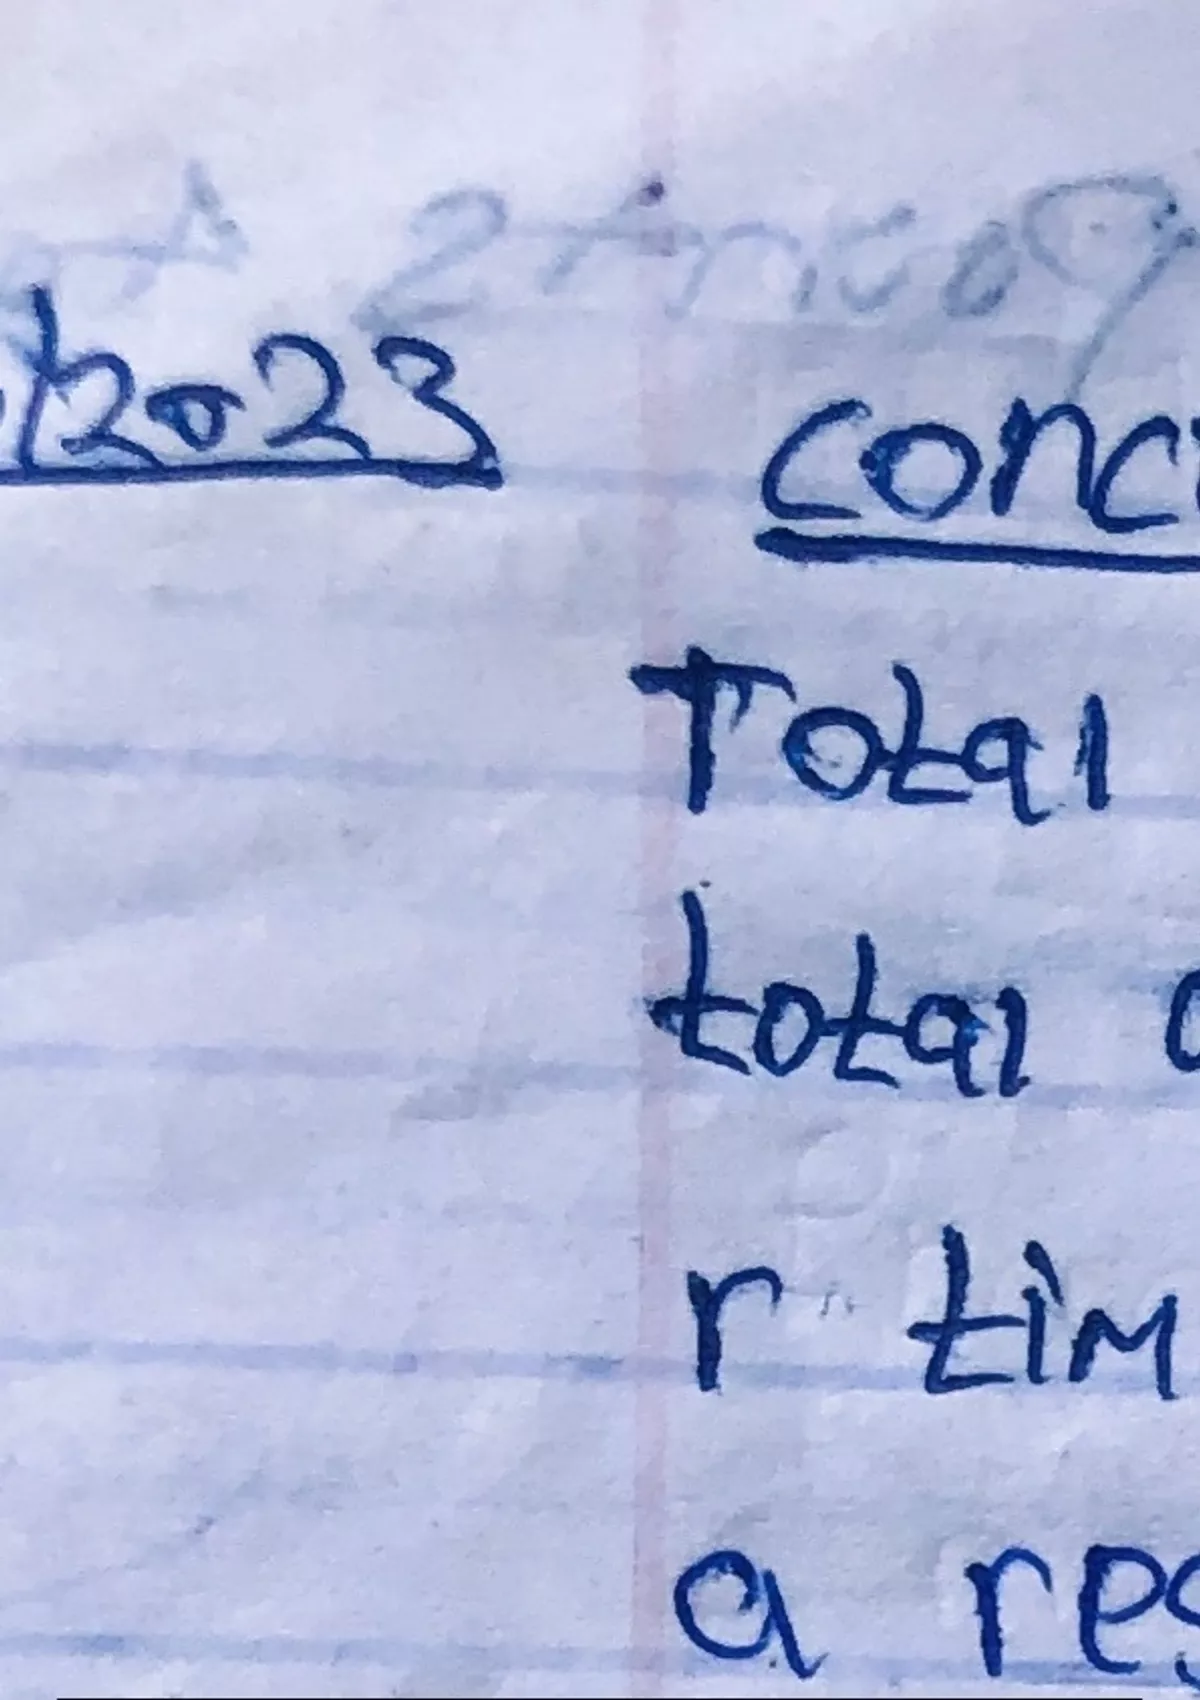 /2023
conc
Total
total
r tim
a res